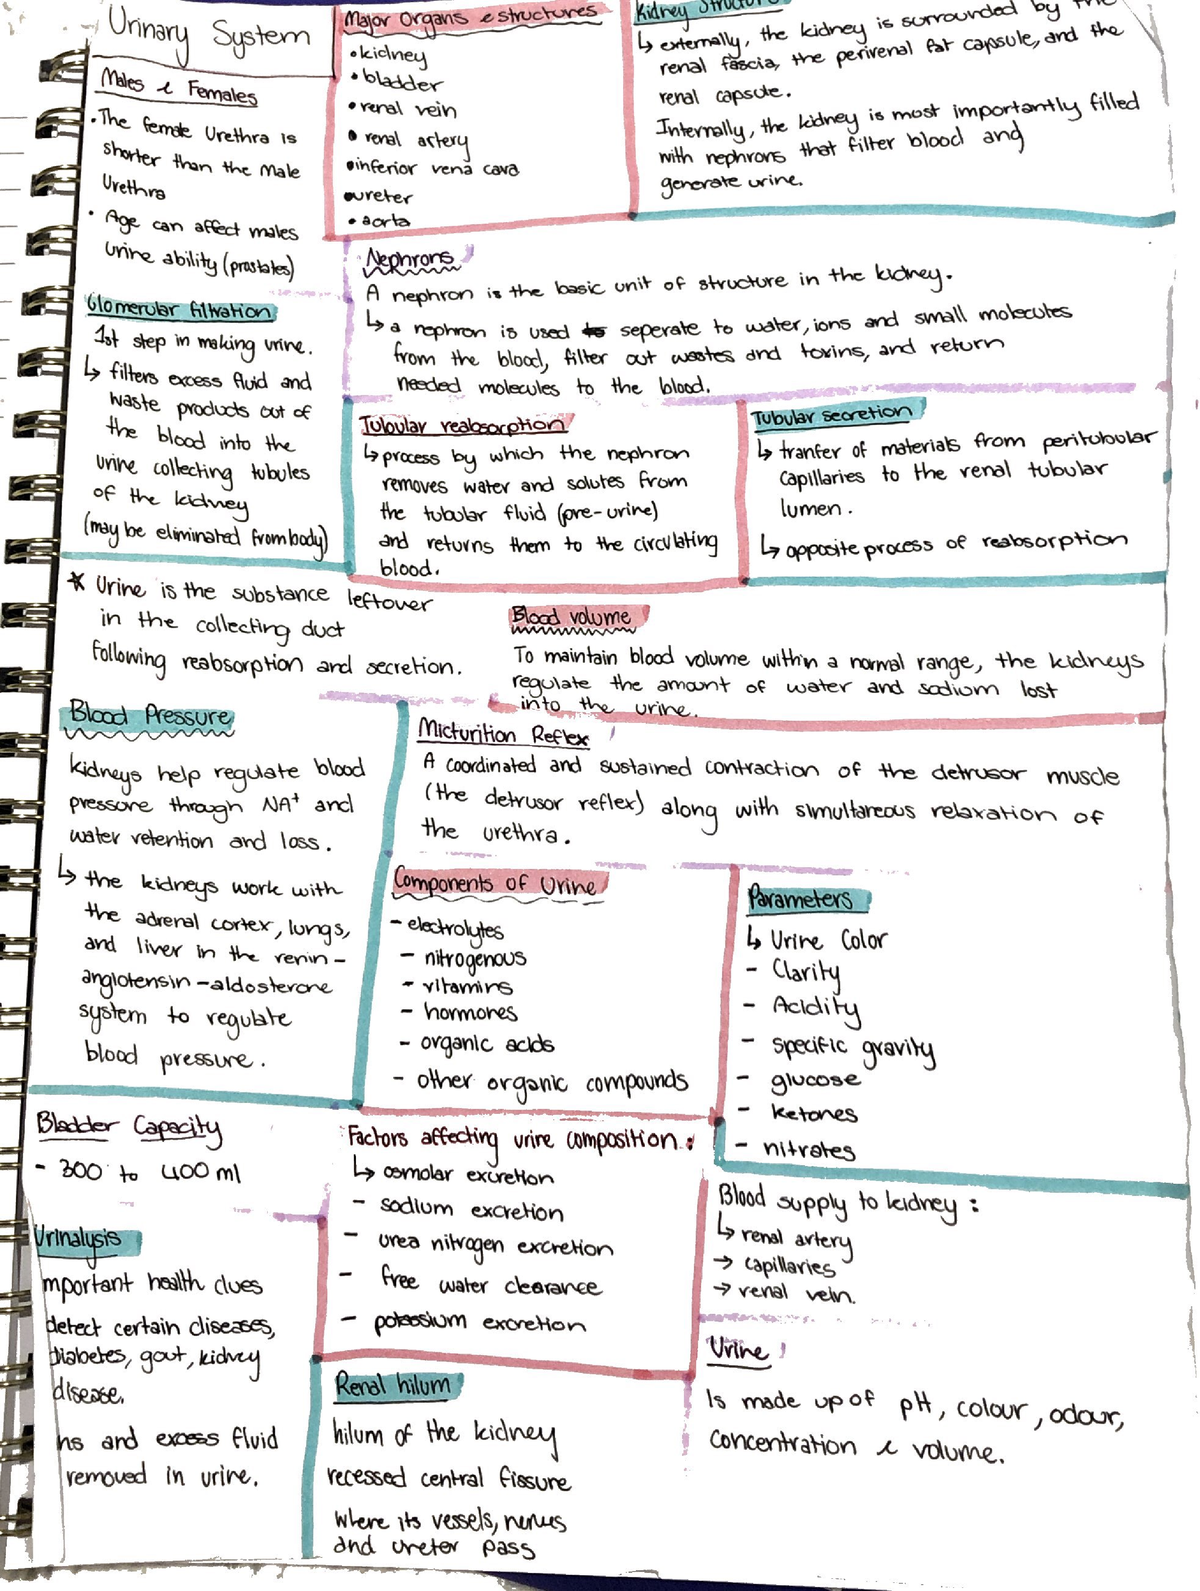 Urinary System
Males & Females
• The female Urethra is
shorter than the Male
Urethra
• Age can affect males
urine ability (prostates)
Major Organs & structures
• kidney
• bladder
• renal vein
• renal artery
• inferior vena cava
• ureter
• aorta
Kidney Structure
↳ externally, the kidney is surrounded by the
renal fascia, the perirenal fat capsule, and the
renal capsule.
Internally, the kidney is most importantly filled
with nephrons that filter blood and
generate urine.
Nephrons
A nephron is the basic unit of structure in the kidney.
↳ a nephron is used to seperate to water, ions and small molecules
from the blood, filter out wastes and toxins, and return
needed molecules to the blood.
Glomerular filtration
1st step in making urine.
↳ filters excess fluid and
waste products out of
the blood into the
urine collecting tubules
of the kidney
(may be eliminated from body)
Tubular reabsorption
↳ process by which the nephron
removes water and solutes from
the tubular fluid (pre-urine)
and returns them to the circulating
blood.
Tubular secretion
↳ tranfer of materials from peritubular
capillaries to the renal tubular
lumen.
↳ opposite process of reabsorption
* Urine is the substance leftover
in the collecting duct
following reabsorption and secretion.
Blood volume
To maintain blood volume within a normal range, the kidneys
regulate the amount of water and sodium lost
into the urine.
Blood Pressure
kidneys help regulate blood
pressure through NA⁺ and
water retention and loss.
↳ the kidneys work with
the adrenal cortex, lungs,
and liver in the renin-
angiotensin-aldosterone
system to regulate
blood pressure.
Micturition Reflex
A coordinated and sustained contraction of the detrusor muscle
(the detrusor reflex) along with simultaneous relaxation of
the urethra.
Components of Urine
- electrolytes
- nitrogenous
- vitamins
- hormones
- organic acids
- other organic compounds
Parameters
↳ Urine Color
- Clarity
- Acidity
- specific gravity
- glucose
- ketones
- nitrates
Bladder Capacity
- 300 to 400 ml
Factors affecting urine composition:
↳ osmolar excretion
- sodium excretion
- urea nitrogen excretion
- free water clearance
- potassium excretion
Blood supply to kidney:
↳ renal artery
→ capillaries
→ renal vein.
Urinalysis
mportant health clues
detect certain diseases,
diabetes, gout, kidney
disease.
ns and excess fluid
removed in urine.
Renal hilum
hilum of the kidney
recessed central fissure
where its vessels, nerves
and ureter pass
Urine
Is made up of pH, colour, odour,
concentration & volume.